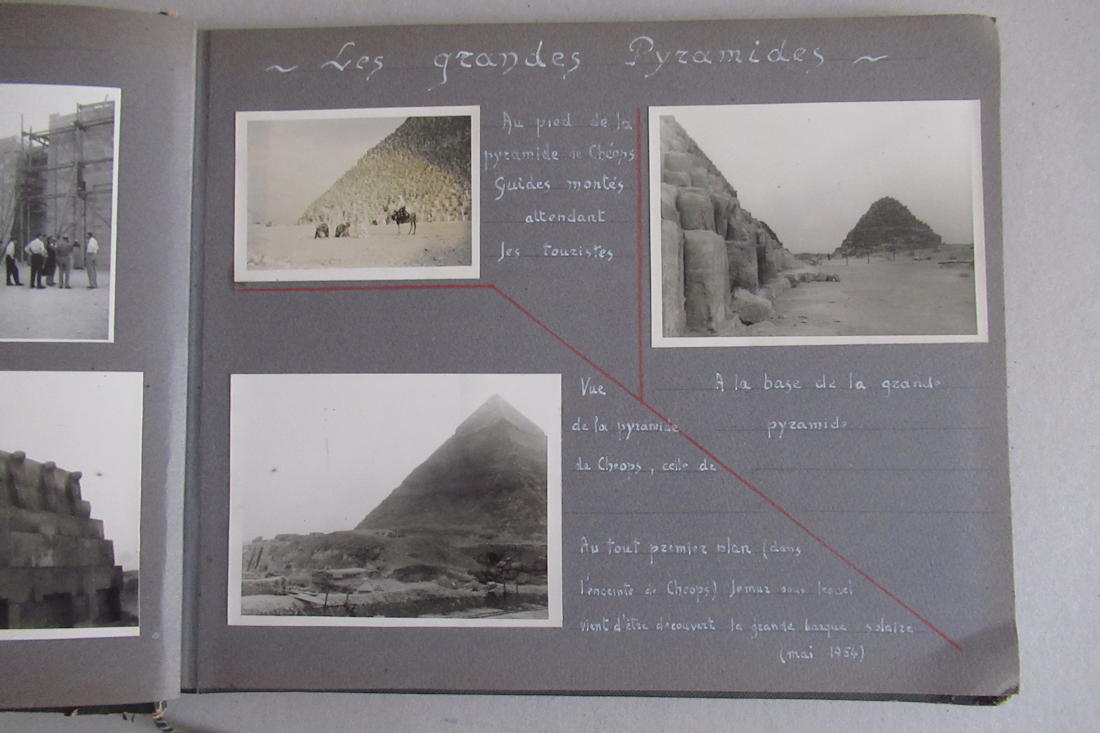 ~ Les grandes Pyramides ~
Au pied de la
pyramide de Chéops
Guides montés
attendant
les touristes
A la base de la grande
pyramide
Vue
de la pyramide
de Cheops, celle de
Au tout premier plan (dans
l'enceinte de Cheops) le mur sous lequel
vient d'être découvert la grande barque solaire
(mai 1954)